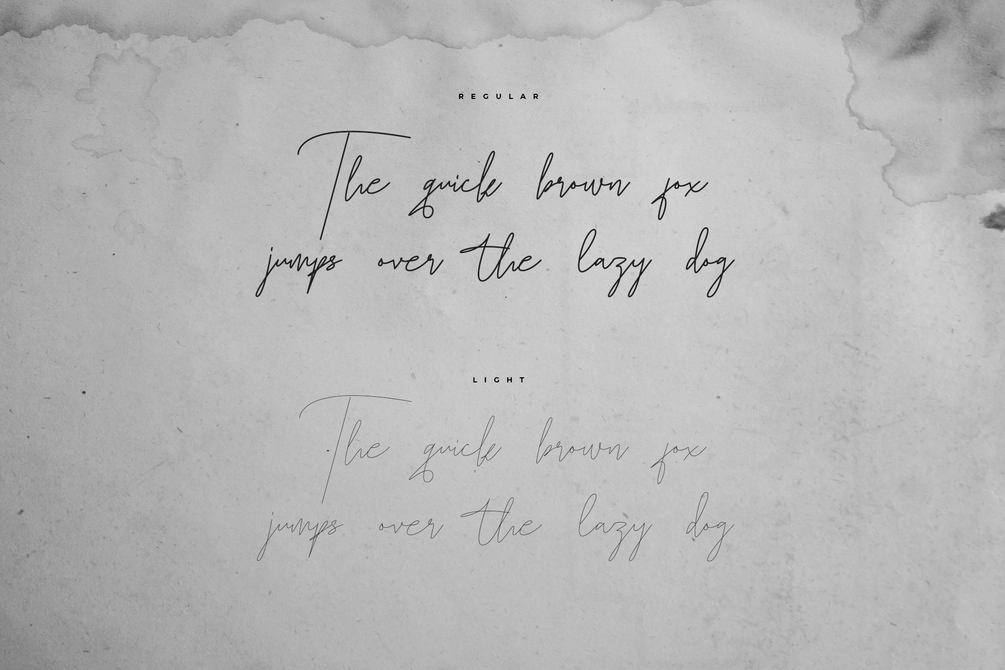 REGULAR
The quick brown fox
jumps over the lazy dog
LIGHT
The quick brown fox
jumps over the lazy dog